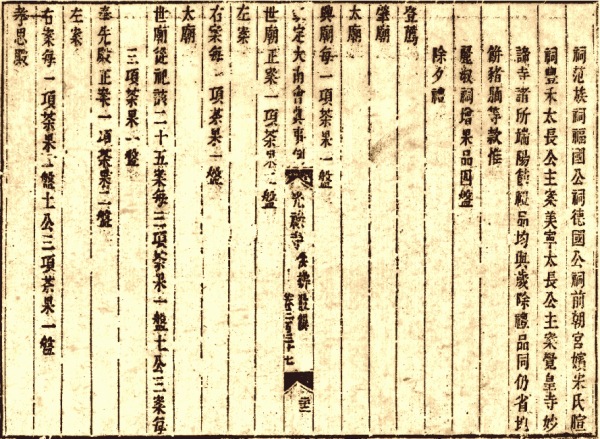 祠范族祠福國公祠德國公祠前朝宮嬪宋氏暄
祠豐禾太長公主案美寧太長公主案覺皇寺妙
諦寺諸所端陽饋禮品均與歲除禮品同仍省均
餅猪腩等款惟
麗椒祠增果品四盤
除夕禮
登薦
肇廟
太廟
興廟每一項茶果一盤
定大南會典事例 光祿寺 二百三十七
世廟正案一項茶果二盤
左案
右案每一項茶果一盤
太廟
世廟從祀該二十五案每三項茶果一盤土公三案每
三項茶果一盤
奉先殿正案一項茶果二盤
左案
右案每一項茶果一盤土公三項茶果一盤
孝思殿